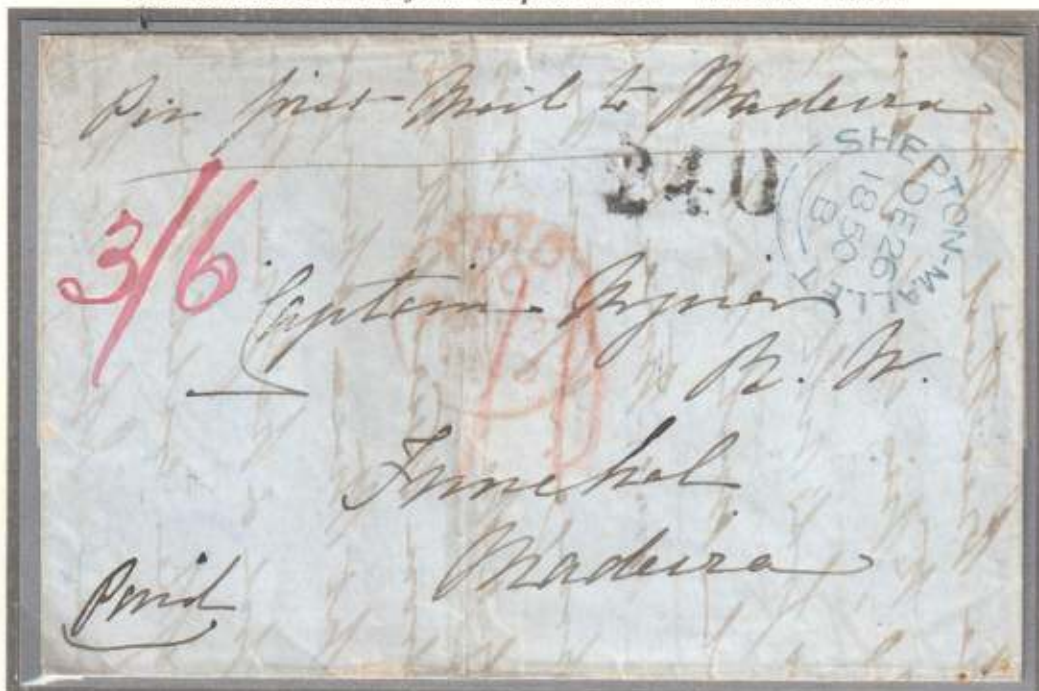 Per first Mail to Madeira
240
SHEPTON-MALLET
DE 26
1850
B
3/6
Captain
R. N.
Funchal
Madeira
Paid